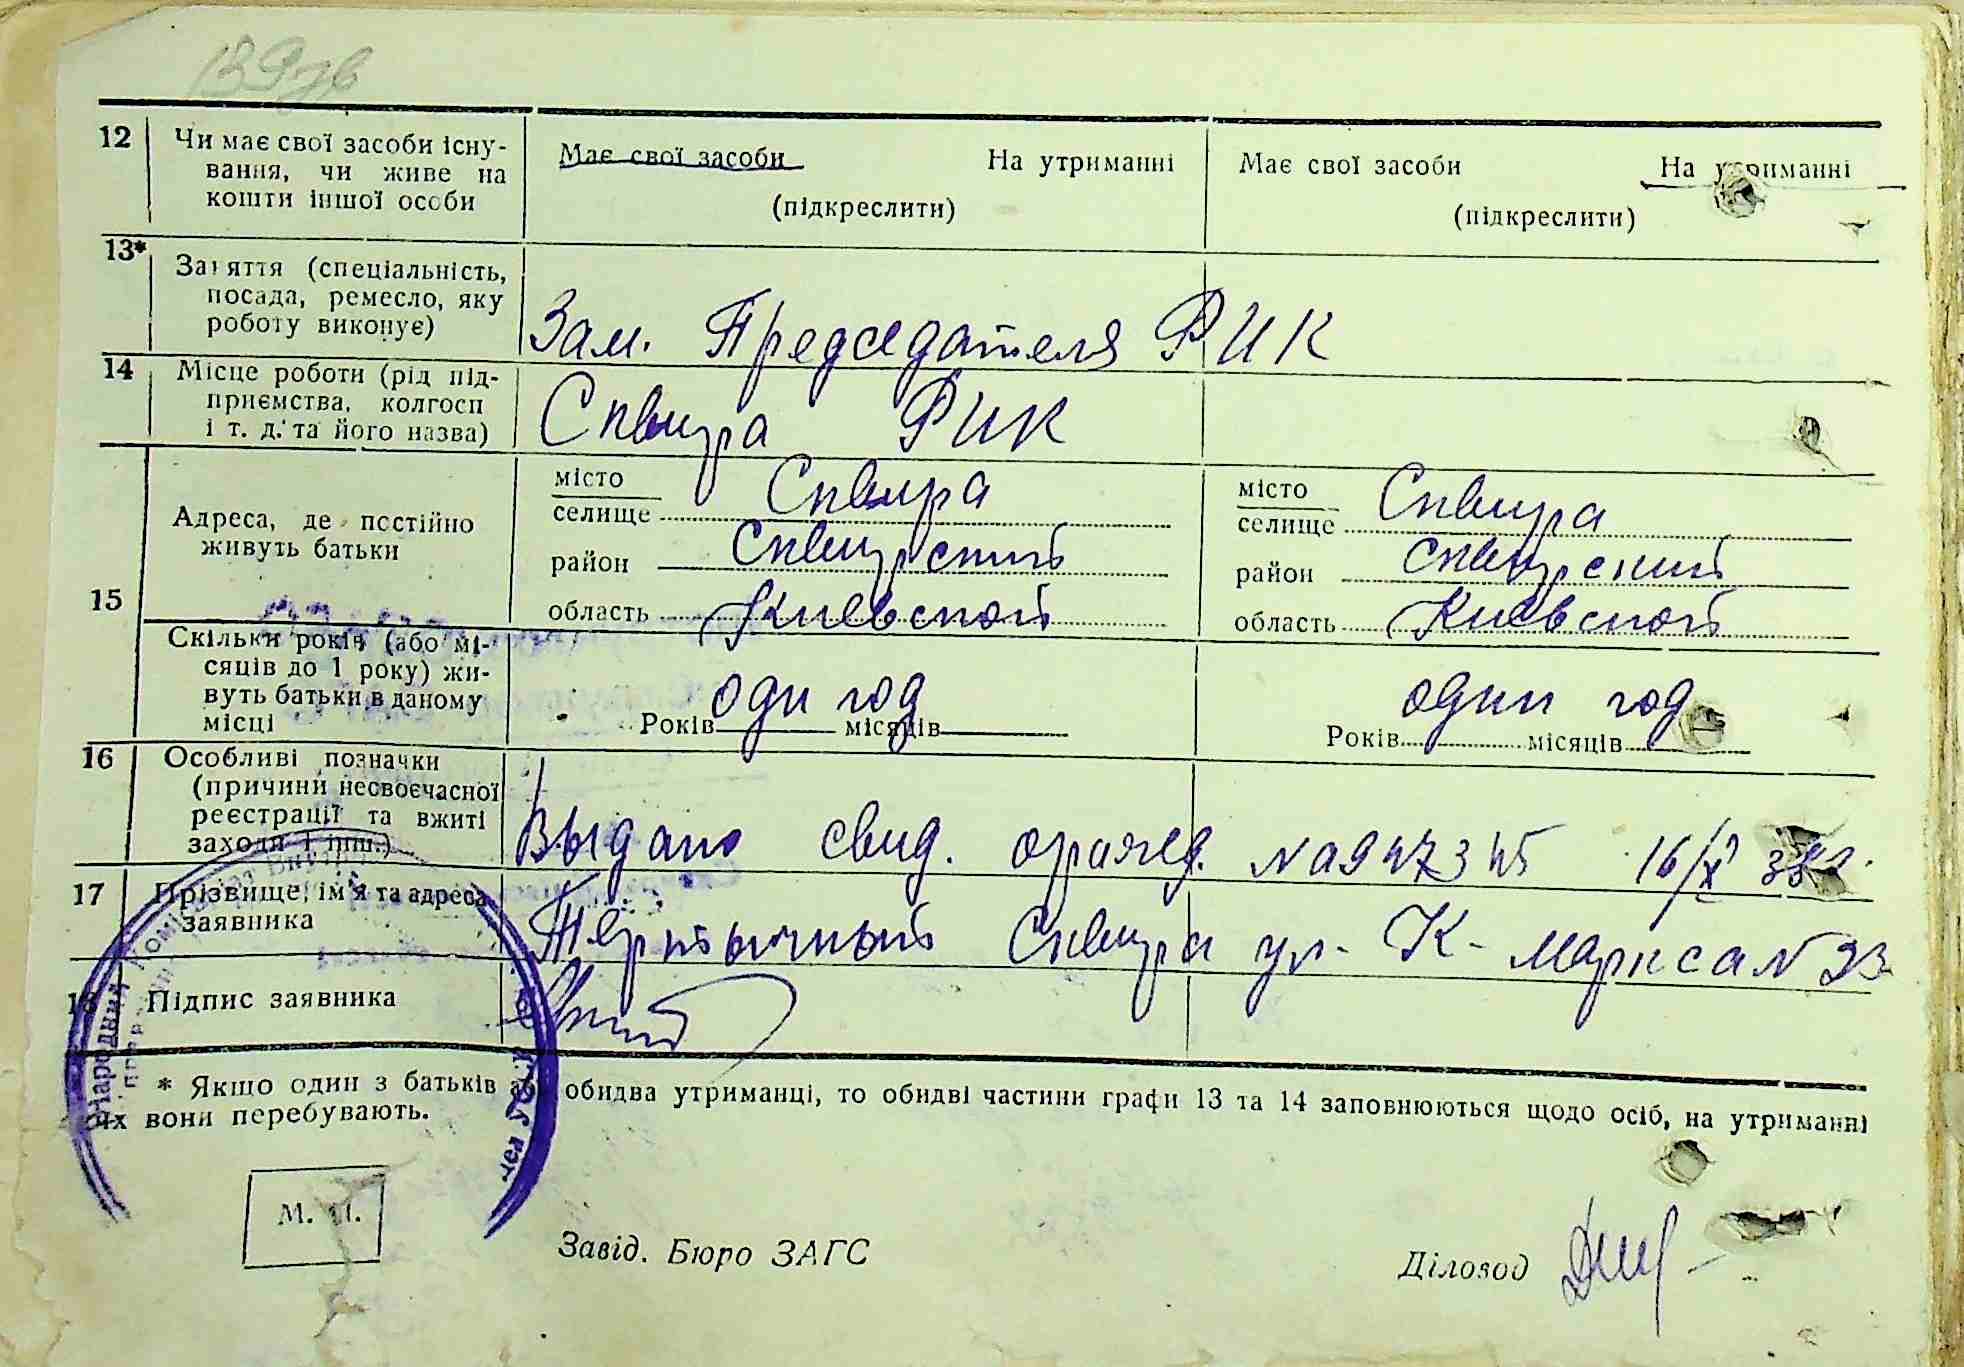 139 зв
12 Чи має свої засоби існу-
вання, чи живе на
кошти іншої особи
Має свої засоби На утриманні
(підкреслити)
Має свої засоби На утриманні
(підкреслити)
13* Заняття (спеціальність,
посада, ремесло, яку
роботу виконує)
Зам. Председателя РИК
14 Місце роботи (рід під-
приємства, колгосп
і т. д. та його назва)
Сквира РИК
15 Адреса, де постійно
живуть батьки
місто
селище Сквира
район Сквирский
область Киевской
місто
селище Сквира
район Сквирский
область Киевской
Скільки років (або мі-
сяців до 1 року) жи-
вуть батьки в даному
місці
оди год
Років місяців
один год
Років місяців
16 Особливі позначки
(причини несвоєчасної
реєстрації та вжиті
заходи і інш.)
Выдано свид. о ражед. № 947345 16/X 38 г.
17 Прізвище, ім'я та адреса
заявника
Сквира ул. К. Маркса № 23
18 Підпис заявника
* Якщо один з батьків або обидва утриманці, то обидві частини графи 13 та 14 заповнюються щодо осіб, на утриманні
яких вони перебувають.
Народний Коміс ат Внутр УРСР
М. П.
Завід. Бюро ЗАГС
Діловод